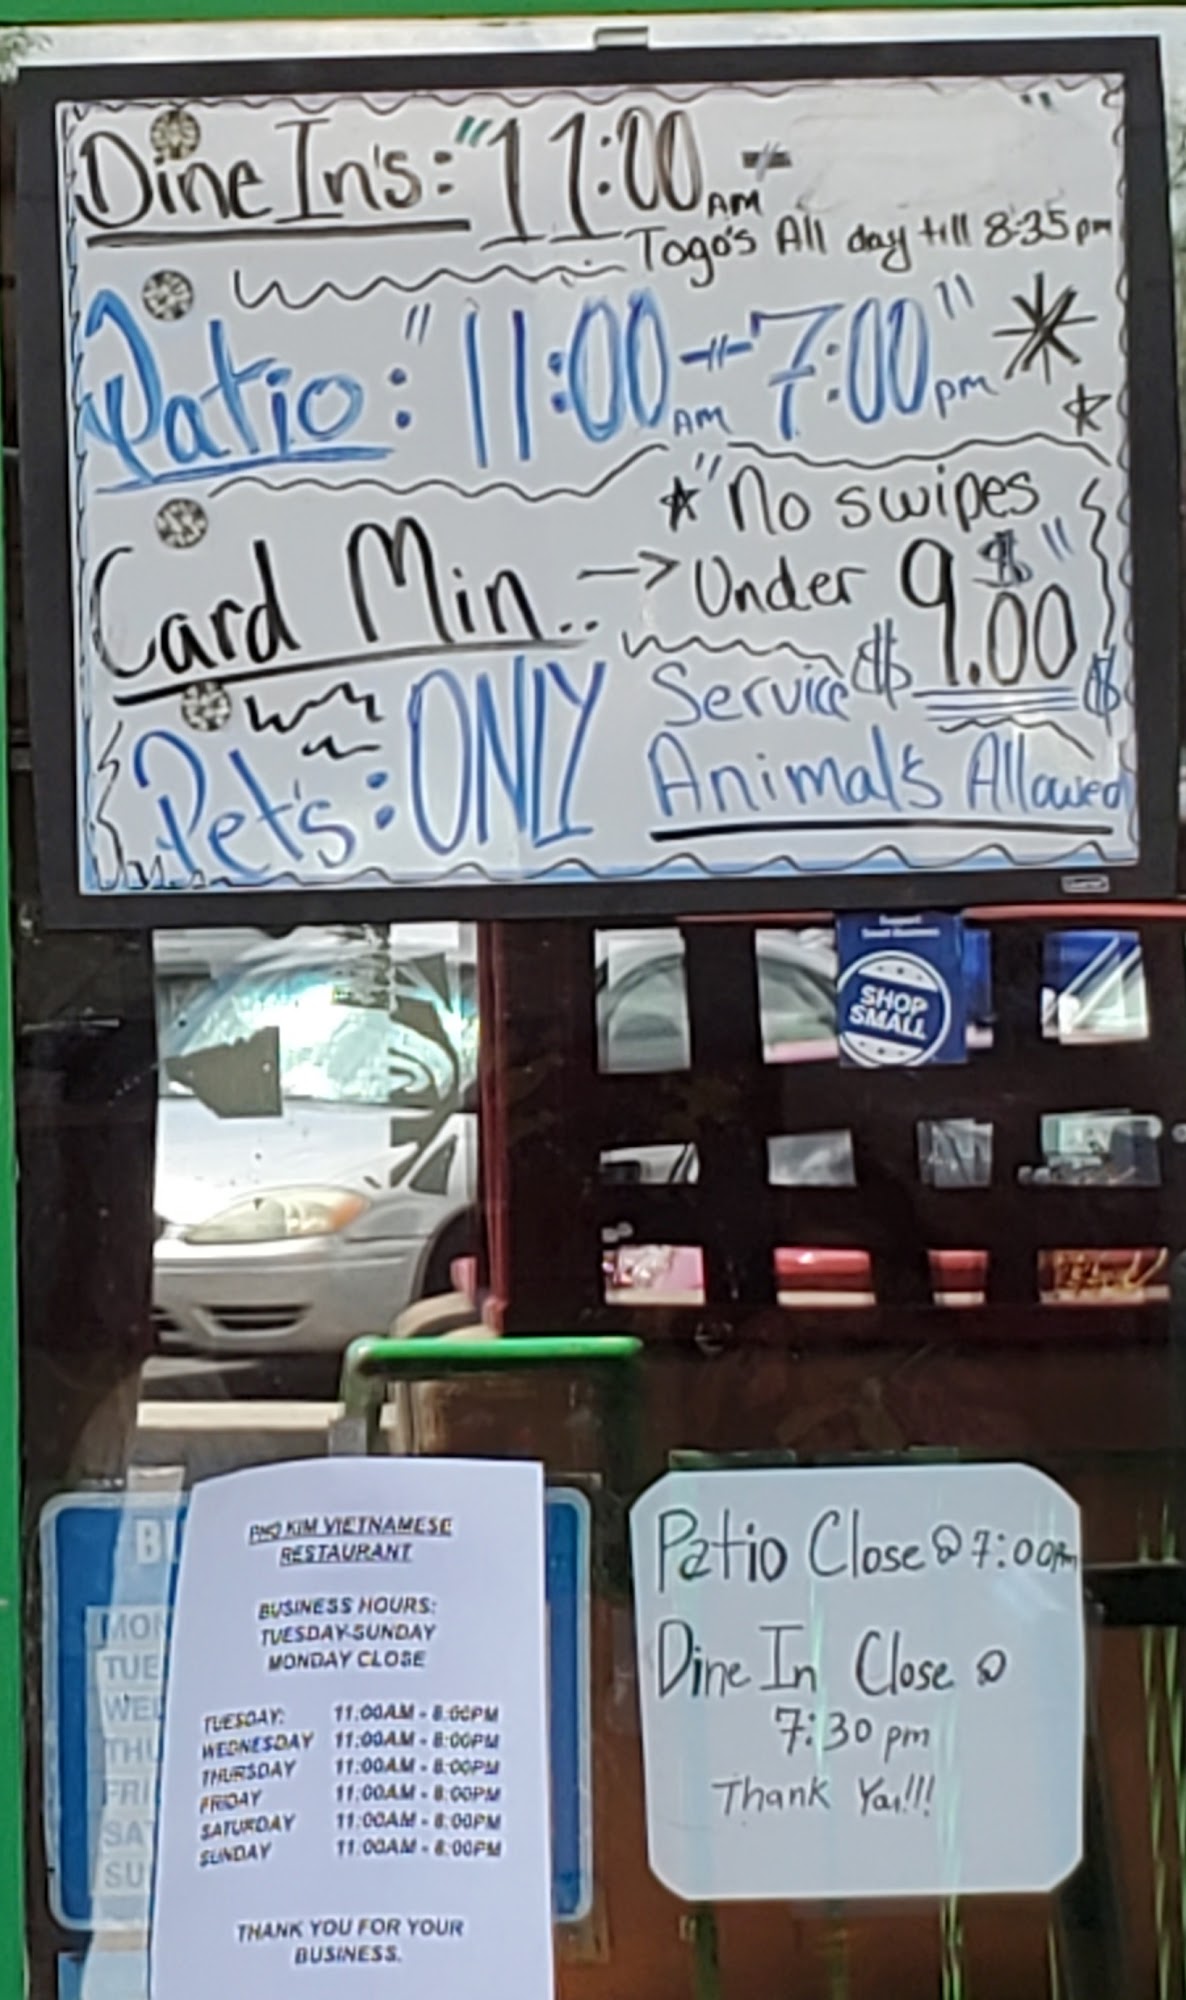 Dine In's: "11:00 AM -
Togo's All day till 8:35 pm
Patio: "11:00 AM - 7:00 pm"
Card Min.. → "No swipes
Under $9.00"
Pet's: ONLY Service
Animals Allowed
Support
Small Business
SHOP
SMALL
PHO KIM VIETNAMESE
RESTAURANT
BUSINESS HOURS:
TUESDAY-SUNDAY
MONDAY CLOSE
TUESDAY: 11:00AM - 8:00PM
WEDNESDAY 11:00AM - 8:00PM
THURSDAY 11:00AM - 8:00PM
FRIDAY 11:00AM - 8:00PM
SATURDAY 11:00AM - 8:00PM
SUNDAY 11:00AM - 8:00PM
THANK YOU FOR YOUR
BUSINESS.
Patio Close @ 7:00pm
Dine In Close @
7:30 pm
Thank You!!!
MON
TUE
WED
THU
FRI
SAT
SU